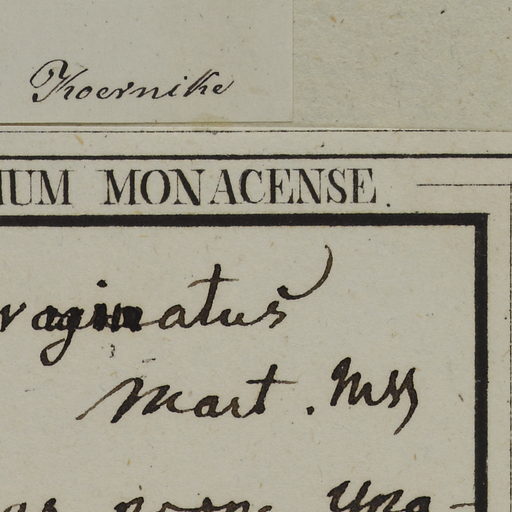 Koernike
IUM MONACENSE.
vaginatus
Mart. Mss
prope